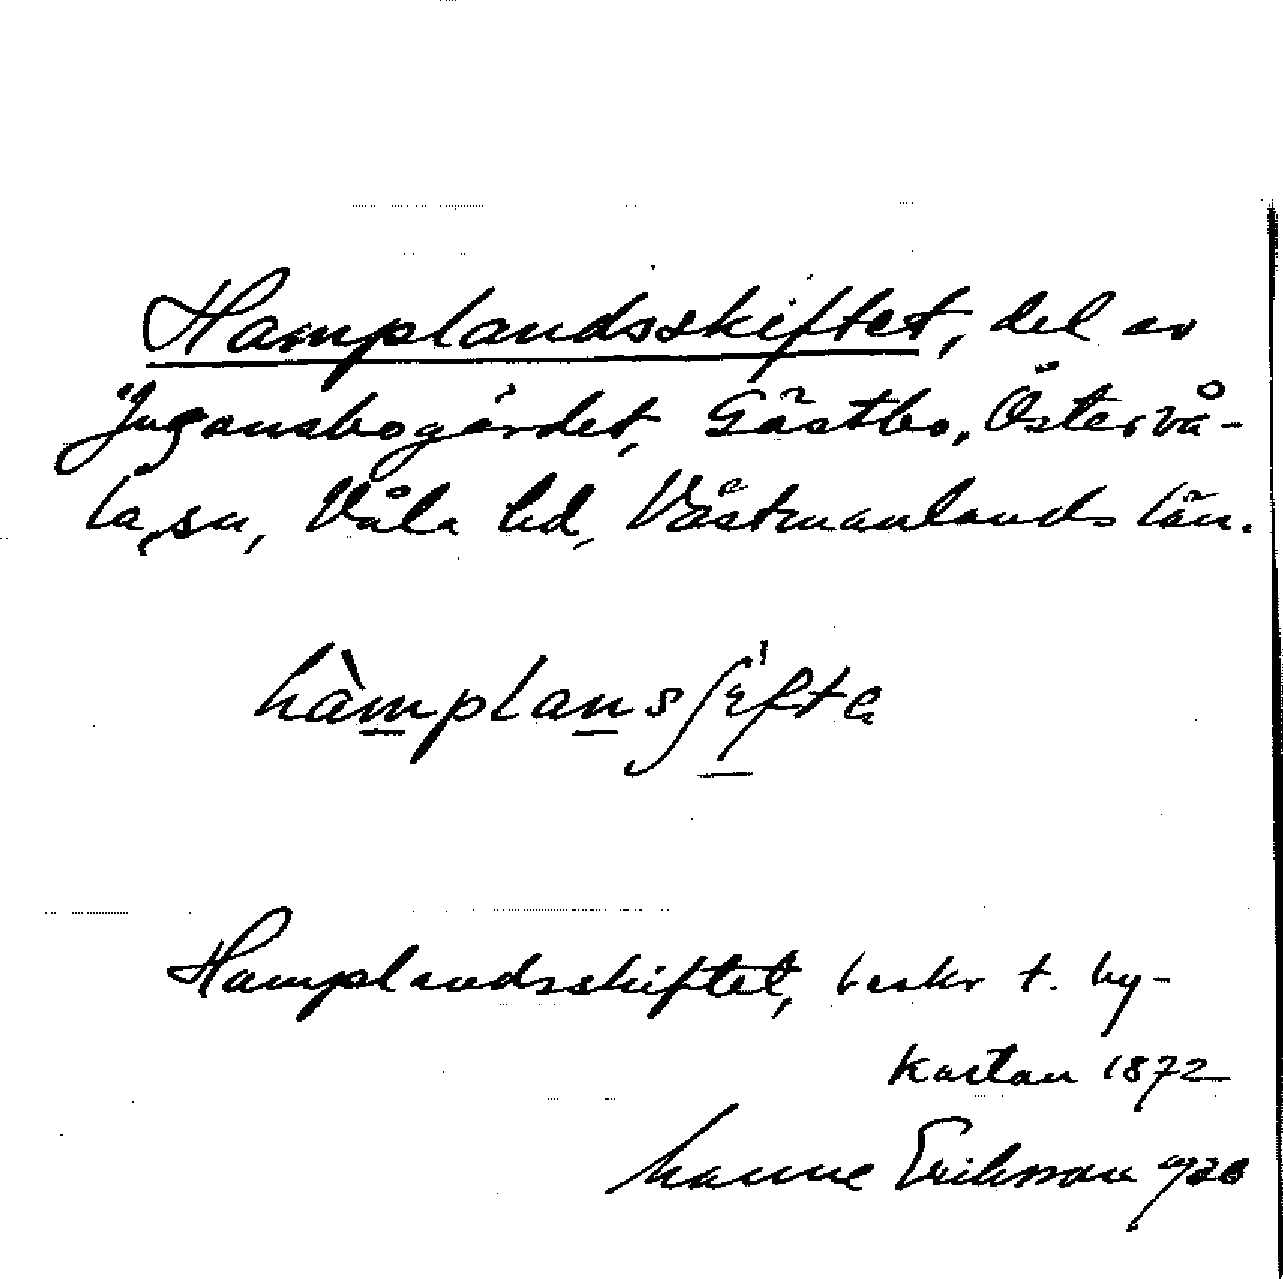 Hamplandsskiftet, del av
Jugansbogärdet, Gästbo, Östervå-
la sn, Våla hd, Västmanlands län.
hàmplansʃifta
Hamplandsskiftet, beskr t. by-
kartan 1872
Manne Eriksson